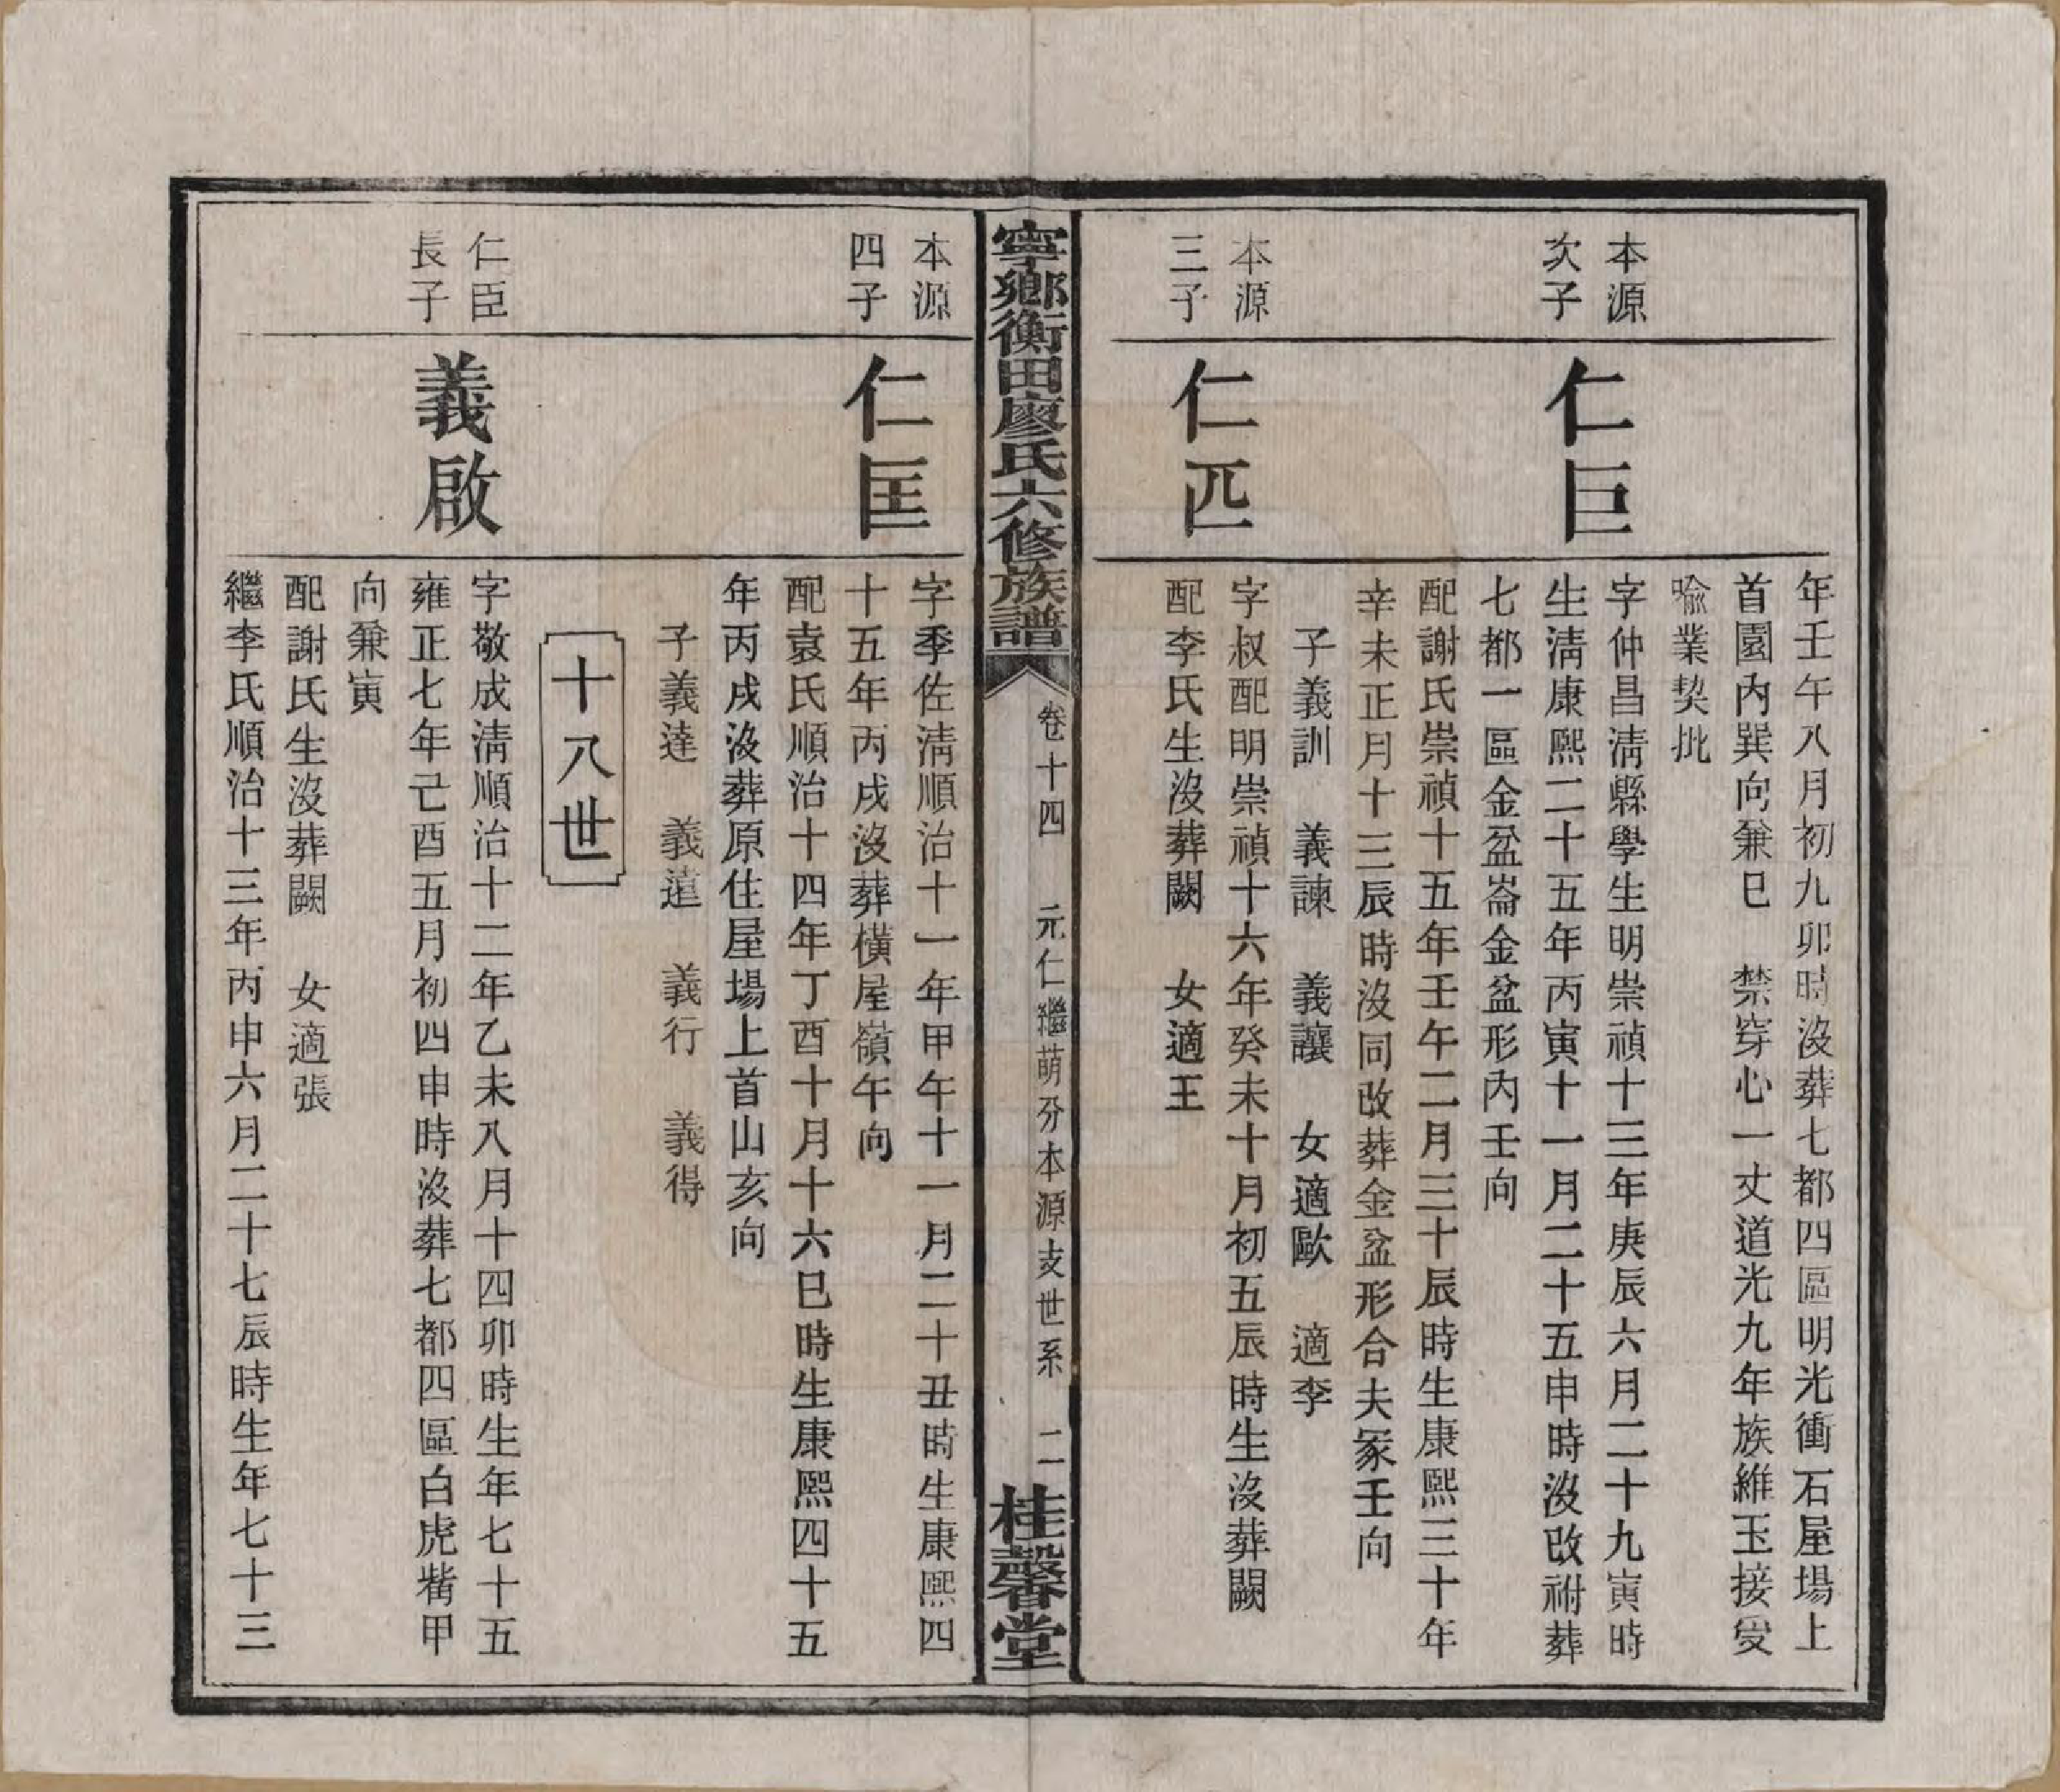 年壬午八月初九卯時沒葬七都四區明光衝石屋場上
首園內巽向兼巳　禁穿心一丈道光九年族維玉接受
喻業契批
本源
次子
仁巨
字仲昌清縣學生明崇禎十三年庚辰六月二十九寅時
生清康熙二十五年丙寅十一月二十五申時沒改祔葬
七都一區金盆崙金盆形內壬向
配謝氏崇禎十五年壬午二月三十辰時生康熙三十年
辛未正月十三辰時沒同改葬金盆形合夫冢壬向
子義訓　義諫　義讓　女適歐　適李
本源
三子
仁匹
字叔配明崇禎十六年癸未十月初五辰時生沒葬闕
配李氏生沒葬闕　女適王
寧鄉衡田廖氏六修族譜
卷十四　元仁繼萌分本源支世系　二
桂馨堂
本源
四子
仁匡
字季佐清順治十一年甲午十一月二十丑時生康熙四
十五年丙戌沒葬橫屋嶺午向
配袁氏順治十四年丁酉十月十六巳時生康熙四十五
年丙戌沒葬原住屋場上首山亥向
子義達　義道　義行　義得
十八世
仁臣
長子
義啟
字敬成清順治十二年乙未八月十四卯時生年七十五
雍正七年己酉五月初四申時沒葬七都四區白虎嘴甲
向兼寅
配謝氏生沒葬闕　女適張
繼李氏順治十三年丙申六月二十七辰時生年七十三